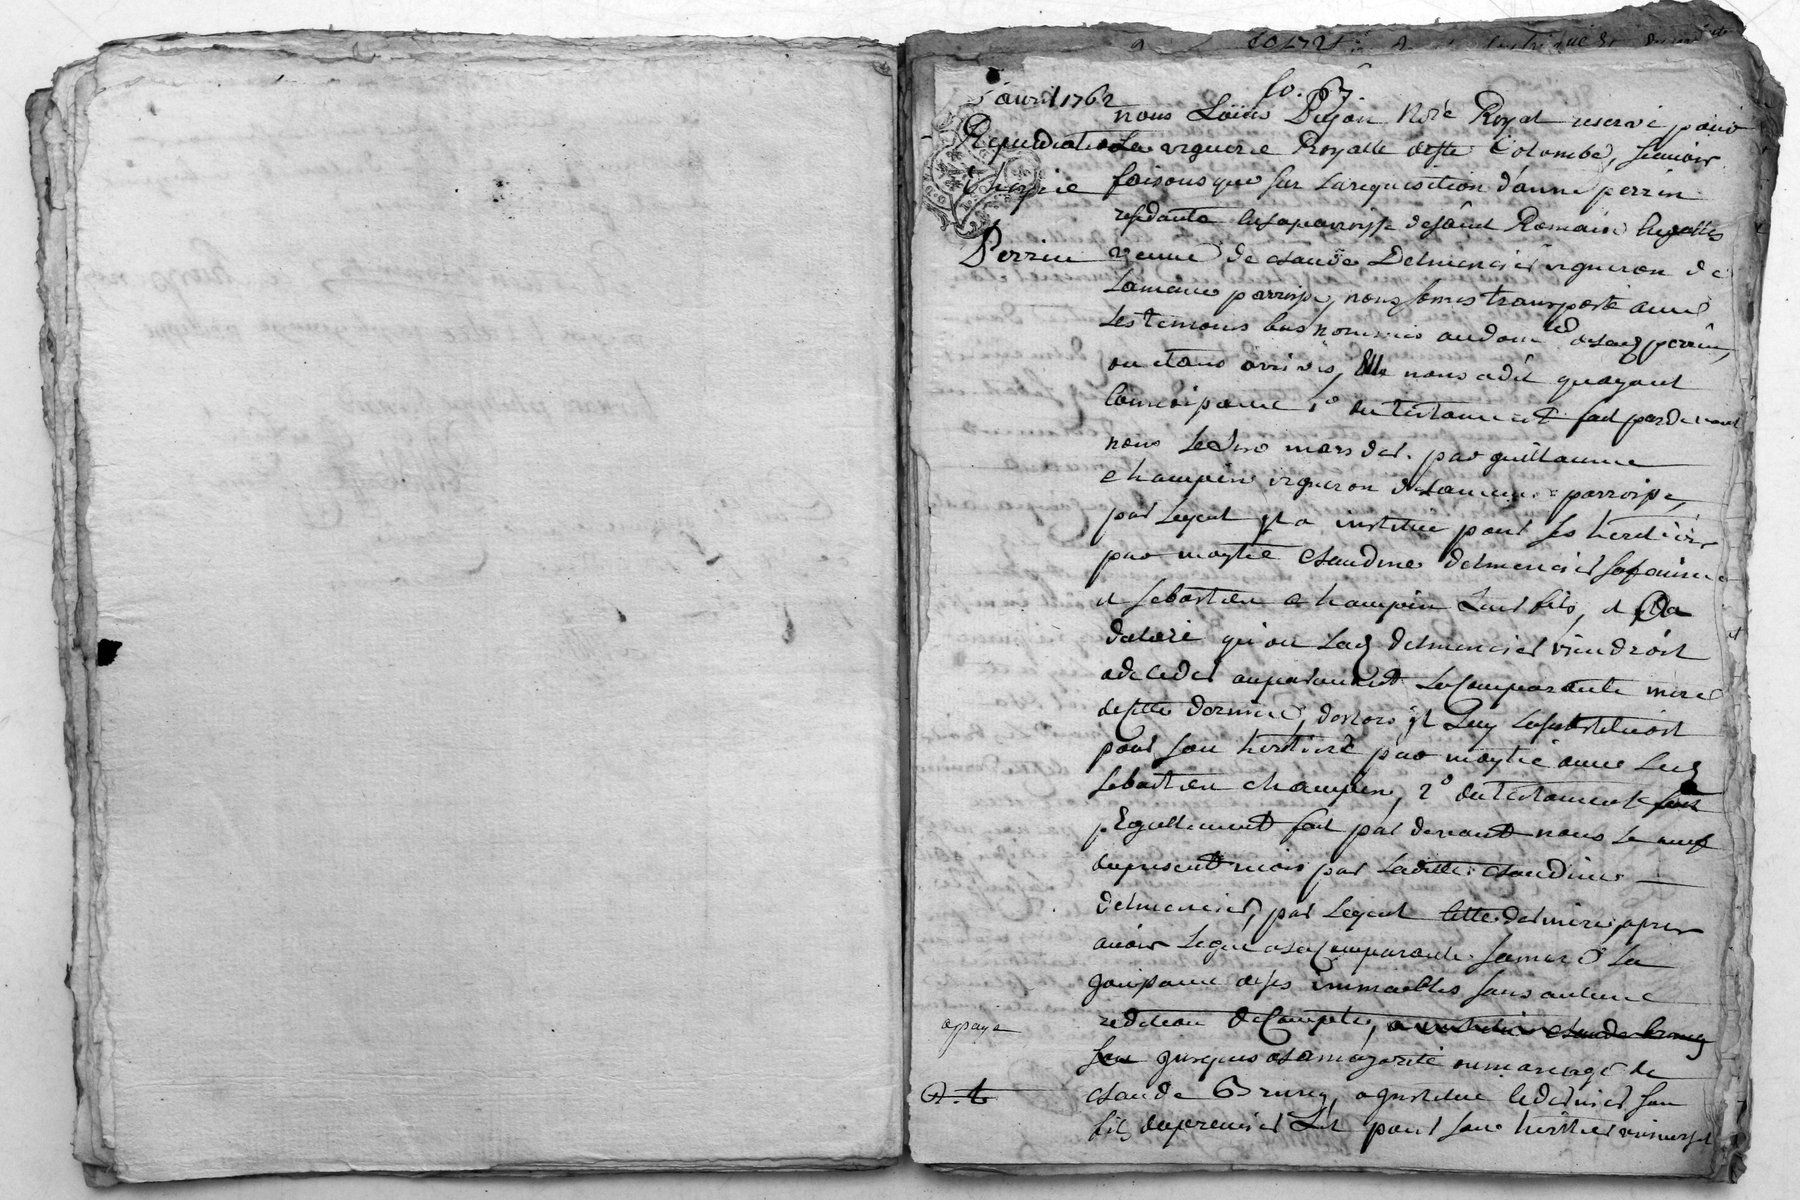 fo. 67
5 avril 1762
Repudiation
Perrin
nous Loüis Dujon No.re Royal reservé pour
La viguerie Royalle de Ste Colombe, scavoir
faisons que sur La requisition d'anne perrin
residante en La parroisse de saint Romain
veuve de claude Delmencier vigneron de
La meme parroisse, nous somes transporté avec
Les temoins bas nommés au dom.le de Lad. perrin,
ou etans arrivés, Elle nous a dit qu'ayant
Connoissance 1o du testament fait pardevant
nous Le dixe mars der. par guillaume
champin vigneron de La meme parroisse,
par Lequel il a institué pour ses heritiers
par moytié claudine delmencier sa femme
et sebastien champin Leur fils, et a
declaré qu'ou Lad. delmencier viendroit
a deceder auparavant La Comparante mere
de cette derniere, des lors il Luy La substituoit
pour son heritiere par moytié avec Led.
sebastien champin, 2o du testament
Egallement fait par devant nous Le neuf
du present mois par Laditte claudine
delmencier, par Lequel cette derniere, apres
avoir Legué a La Comparante sa mere La
jouissance de ses immeubles sans aucune
reddition de Compte, a institué claude bruney
jusques a La majorité ou mariage de
claude Bruney, a institué ce dernier son
fils du premier Lit pour son heritier universel
a paye